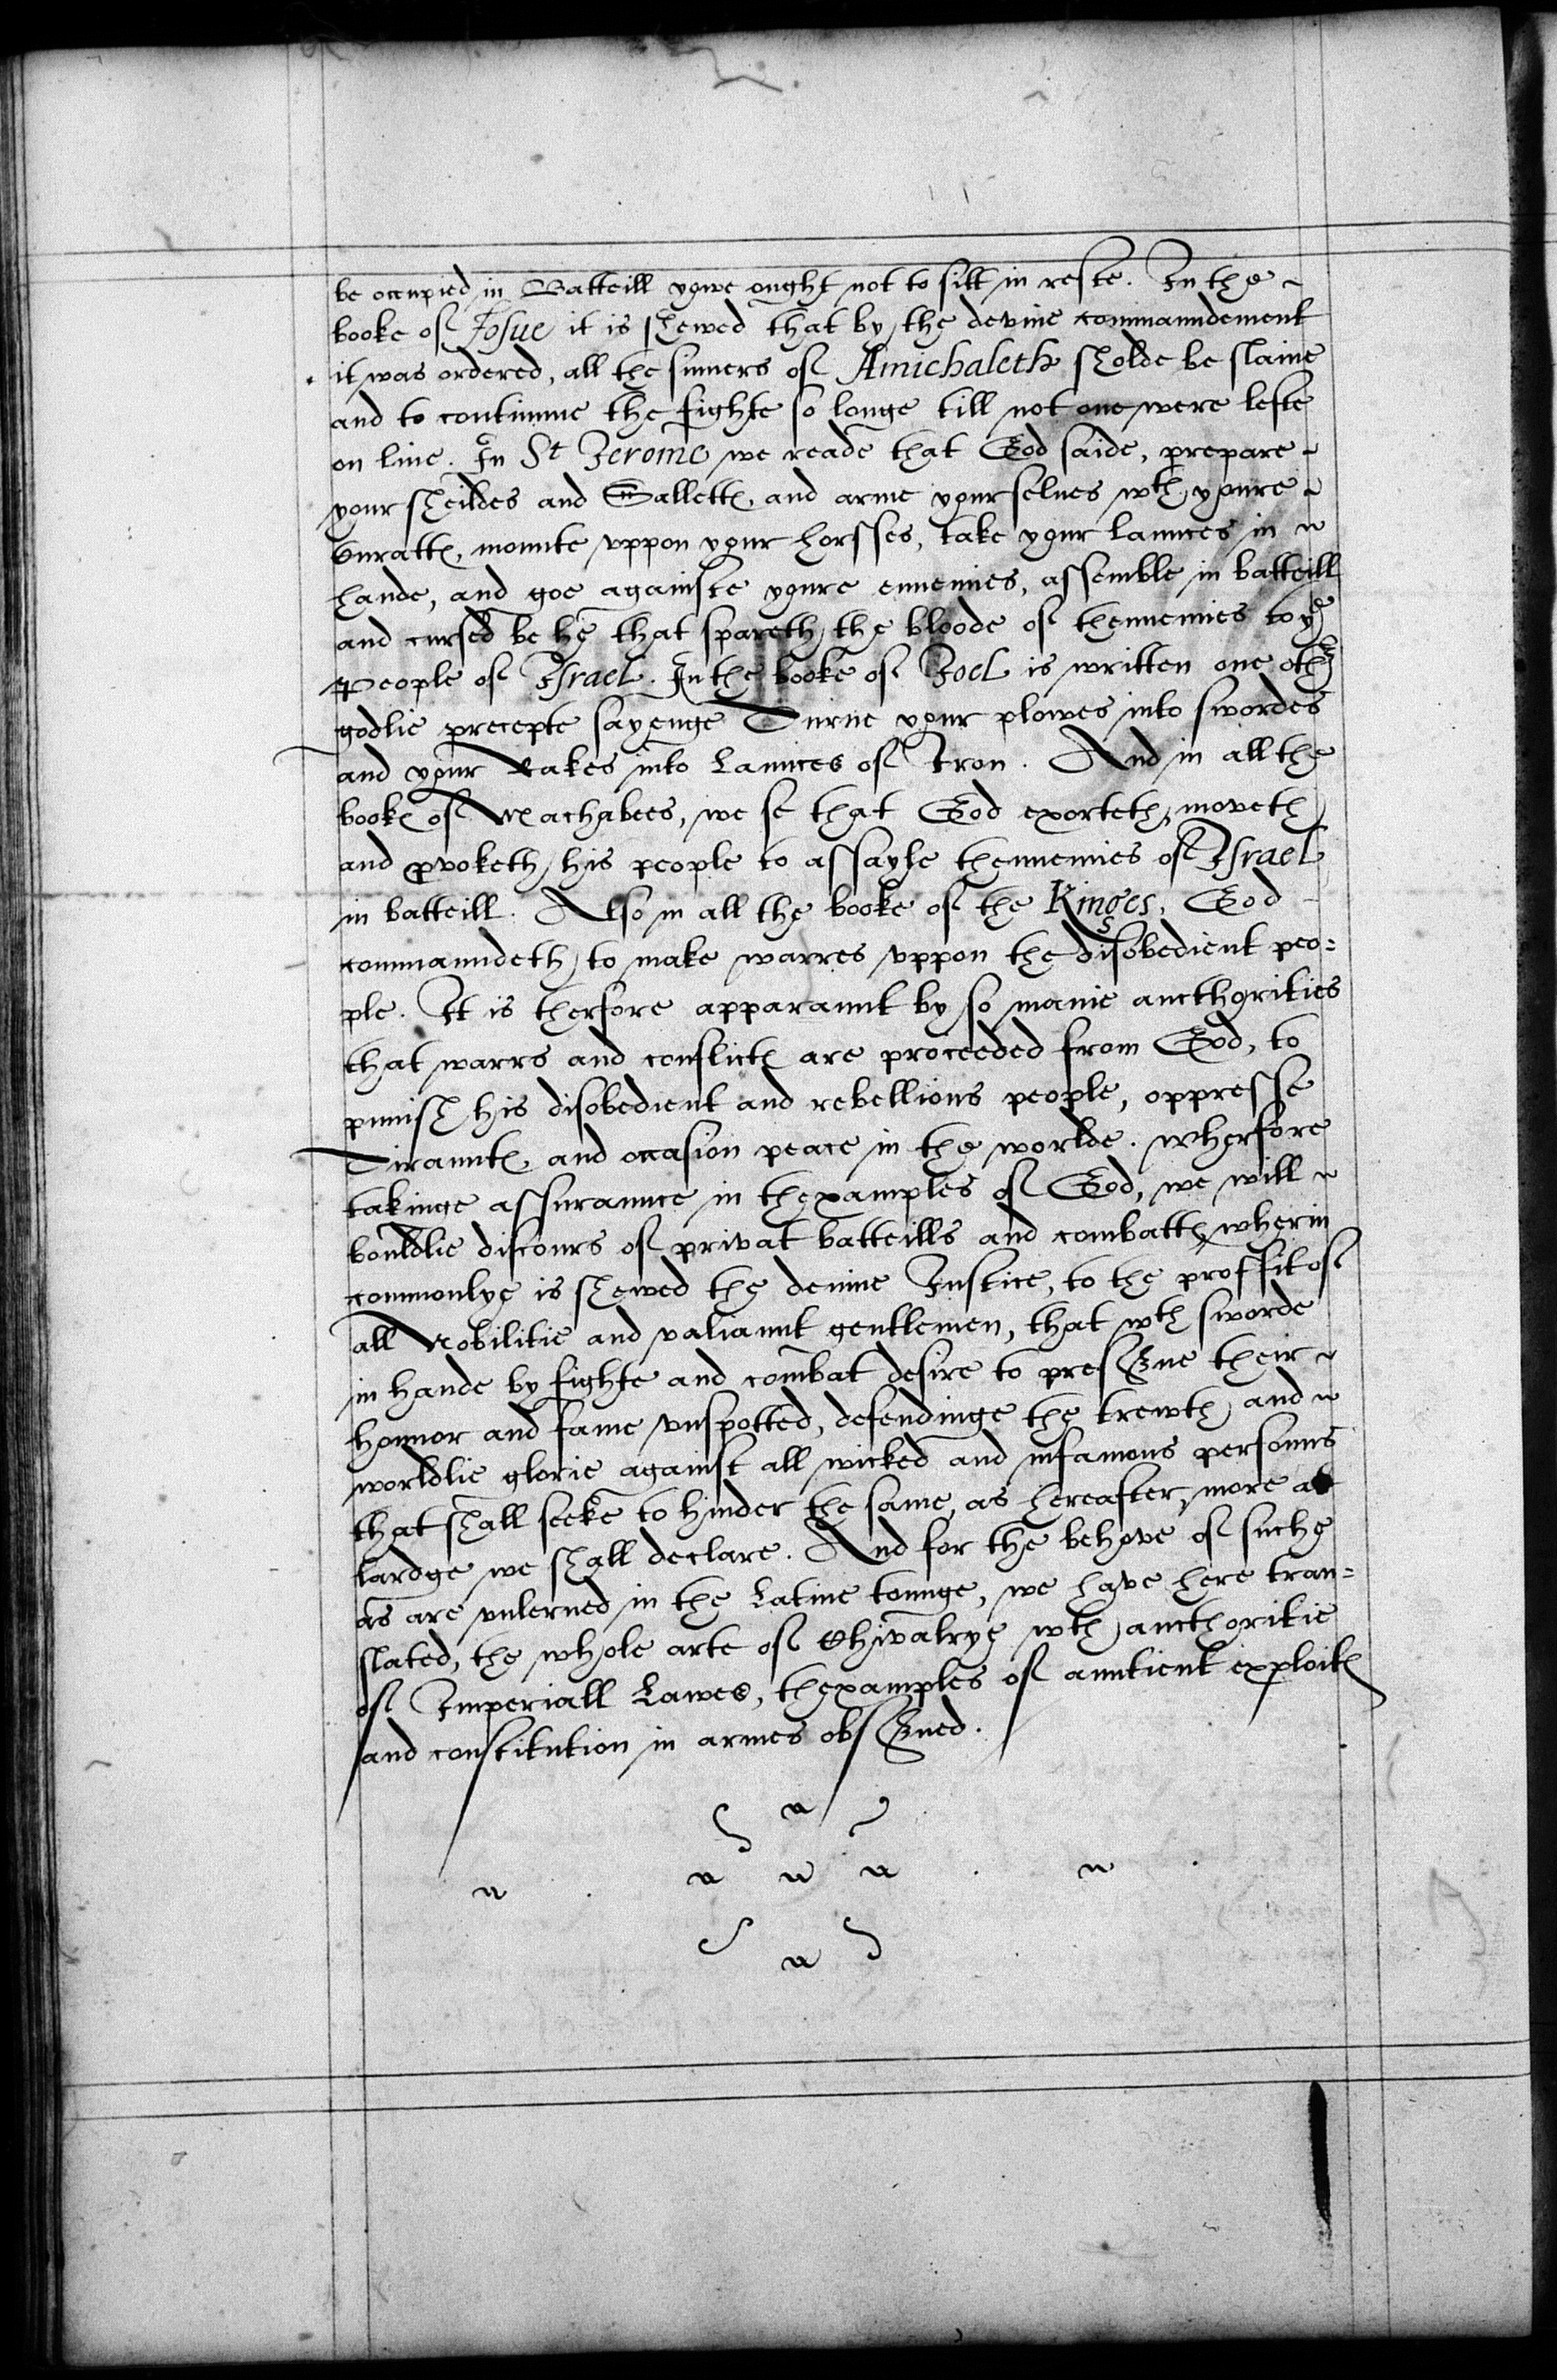 be occupied in Batteill yowe ought not to sitt in reste. In the
booke of Josue it is shewed that by the devine commaundement
it was ordered, all the sinners of Amichaleth sholde be slaine
and to continnue the fighte so longe till not one were lefte
on live. In St Jerome we reade that God saide, prepare
your sheildes and Salletts, and arme yourselves wth youre
Curatts, mounte uppon your horsses, take your launces in
hande, and goe againste youre ennemies, assemble in batteill
and cursed be he that spareth the bloode of thennemies to ye
People of Israel. In the booke of Joel is written one other
godlie precepte sayenge Turne your plowes into swordes
and your Rakes into Launces of Iron. And in all the
bookes of Machabees, we se that God exorteth, moveth
and provoketh his people to assayle thennemies of Israel
in batteill. Also in all the booke of the Kinges, God
commaundeth to make warres uppon the disobedient peo=
ple. It is therfore apparaunt by so manie aucthorities
that warrs and conflicts are proceeded from God, to
punish his disobedient and rebellious people, oppresse
Tiraunts, and occasion peace in the worlde. Wherfore
takinge assuraunce in thexamples of God, we will
bouldlie discours of privat batteills and combatts, wherin
commonlye is shewed the devine Justice, to the proffit of
all Nobilitie and valiaunt gentlemen, that wth sworde
in hande by fighte and combat desire to preserve their
honnor and fame unspotted, defendinge the trewth and
worldlie glorie against all wicked and infamous personns
that shall seeke to hinder the same, as hereafter more at
lardge we shall declare. And for the behove of suche
as are unlerned in the Latine tounge, we have here tran=
slated, the whole arte of Chivalrye wth aucthoritie
of Imperiall Lawes, thexamples of auntient exploits
and constitution in armes observed.